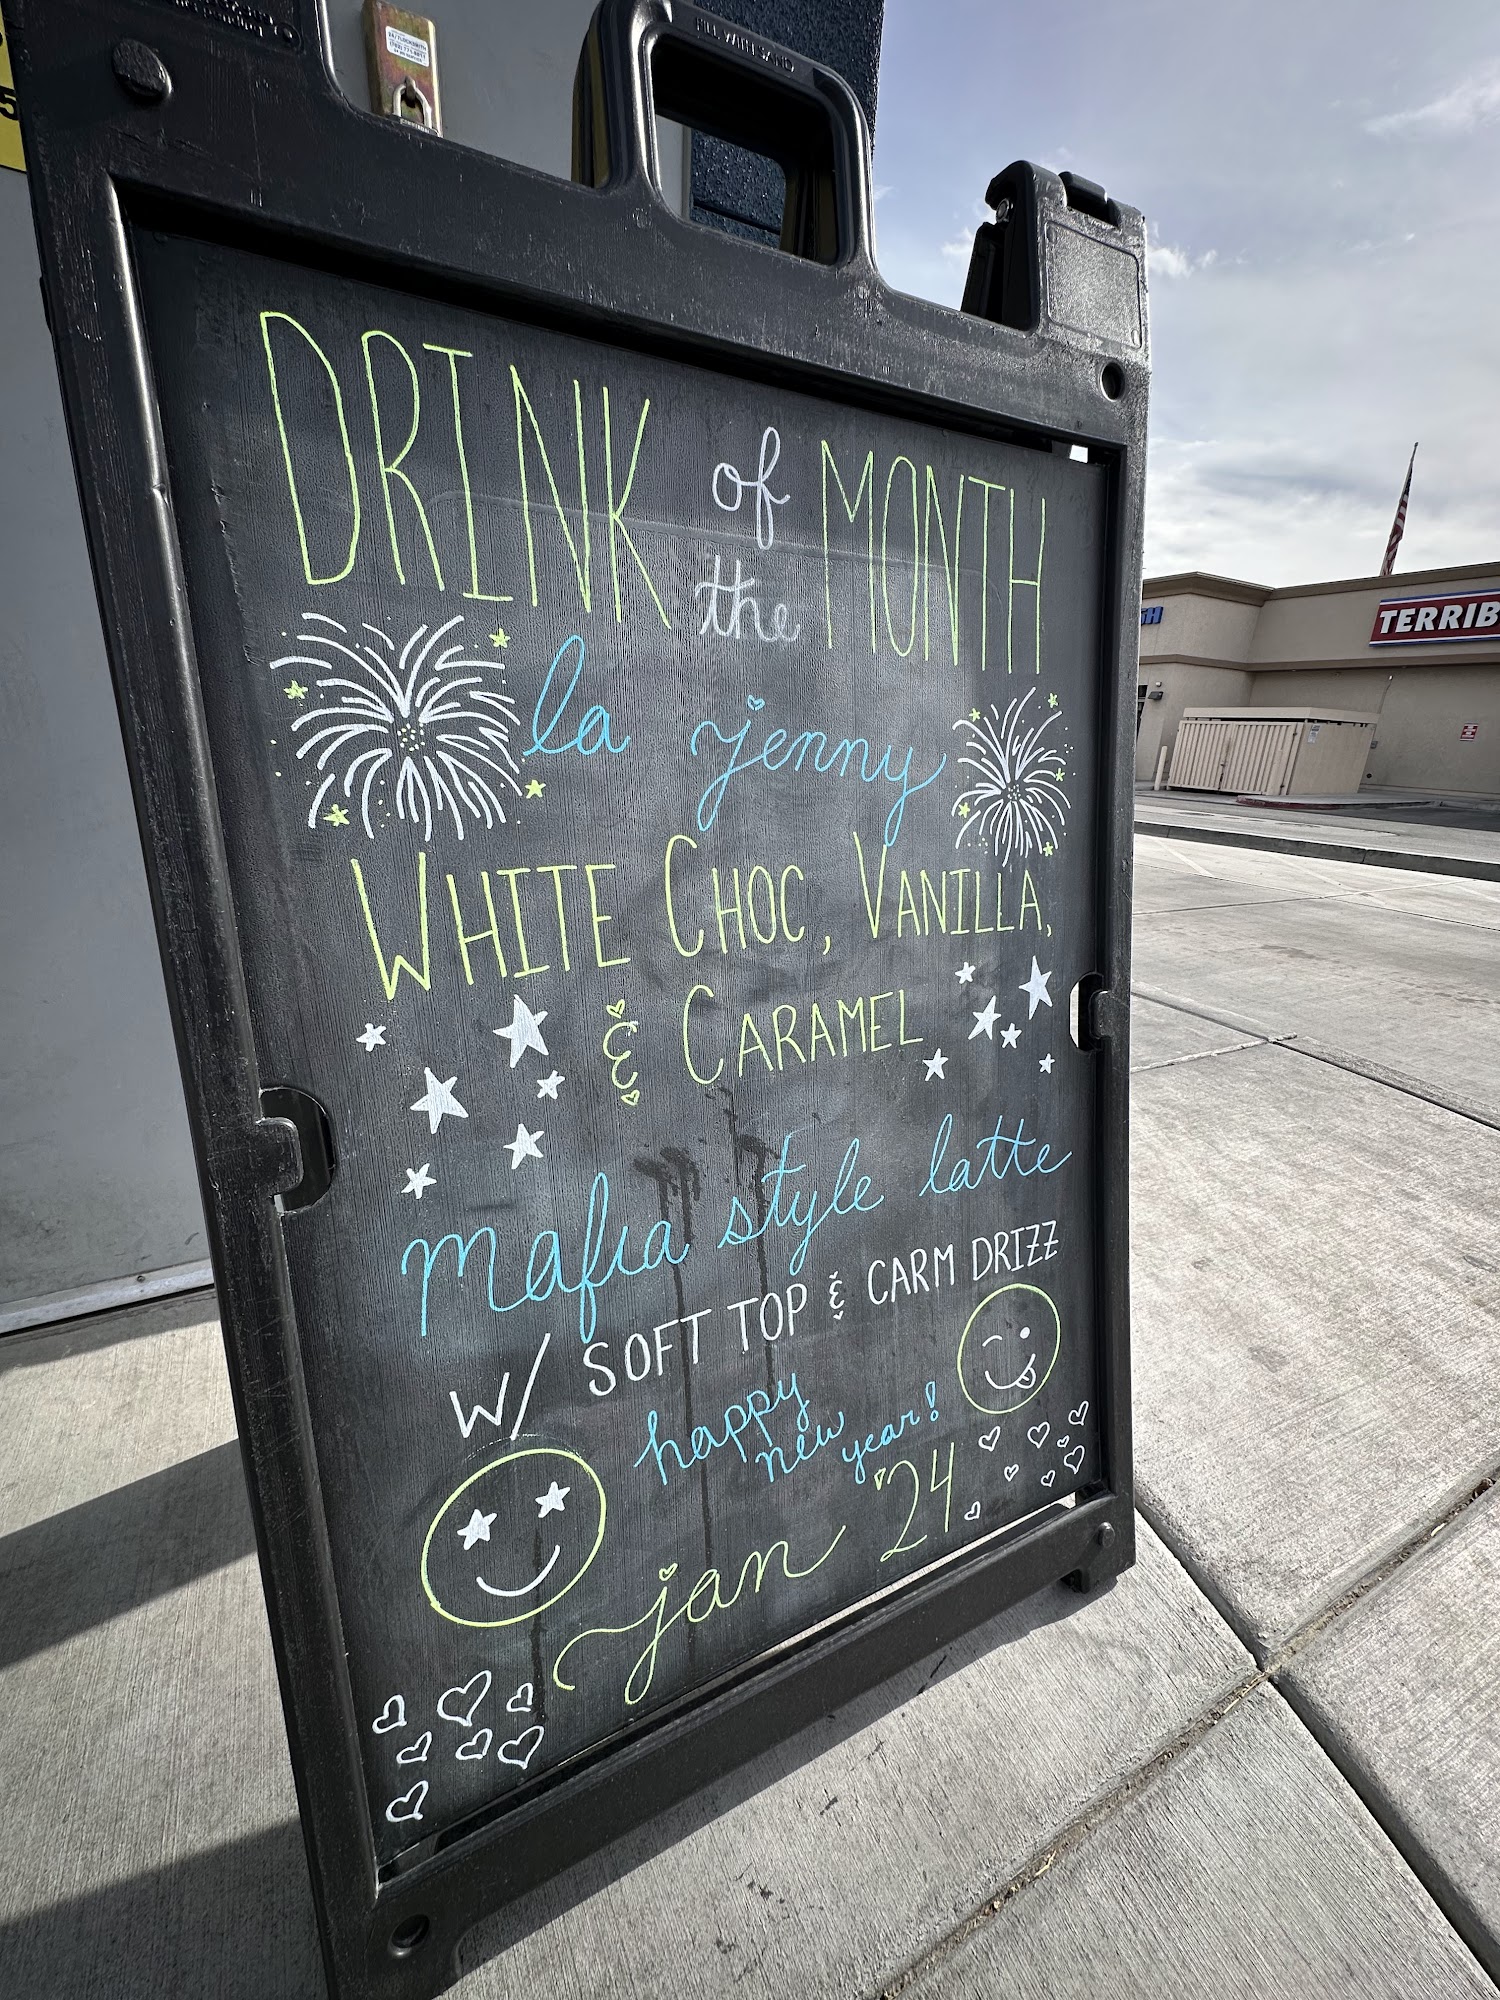 FILL WITH SAND
DRINK of the MONTH
la jenny
WHITE CHOC, VANILLA,
& CARAMEL
mafia style latte
W/ SOFT TOP & CARM DRIZZ
happy
new year!
jan '24
TERRIB